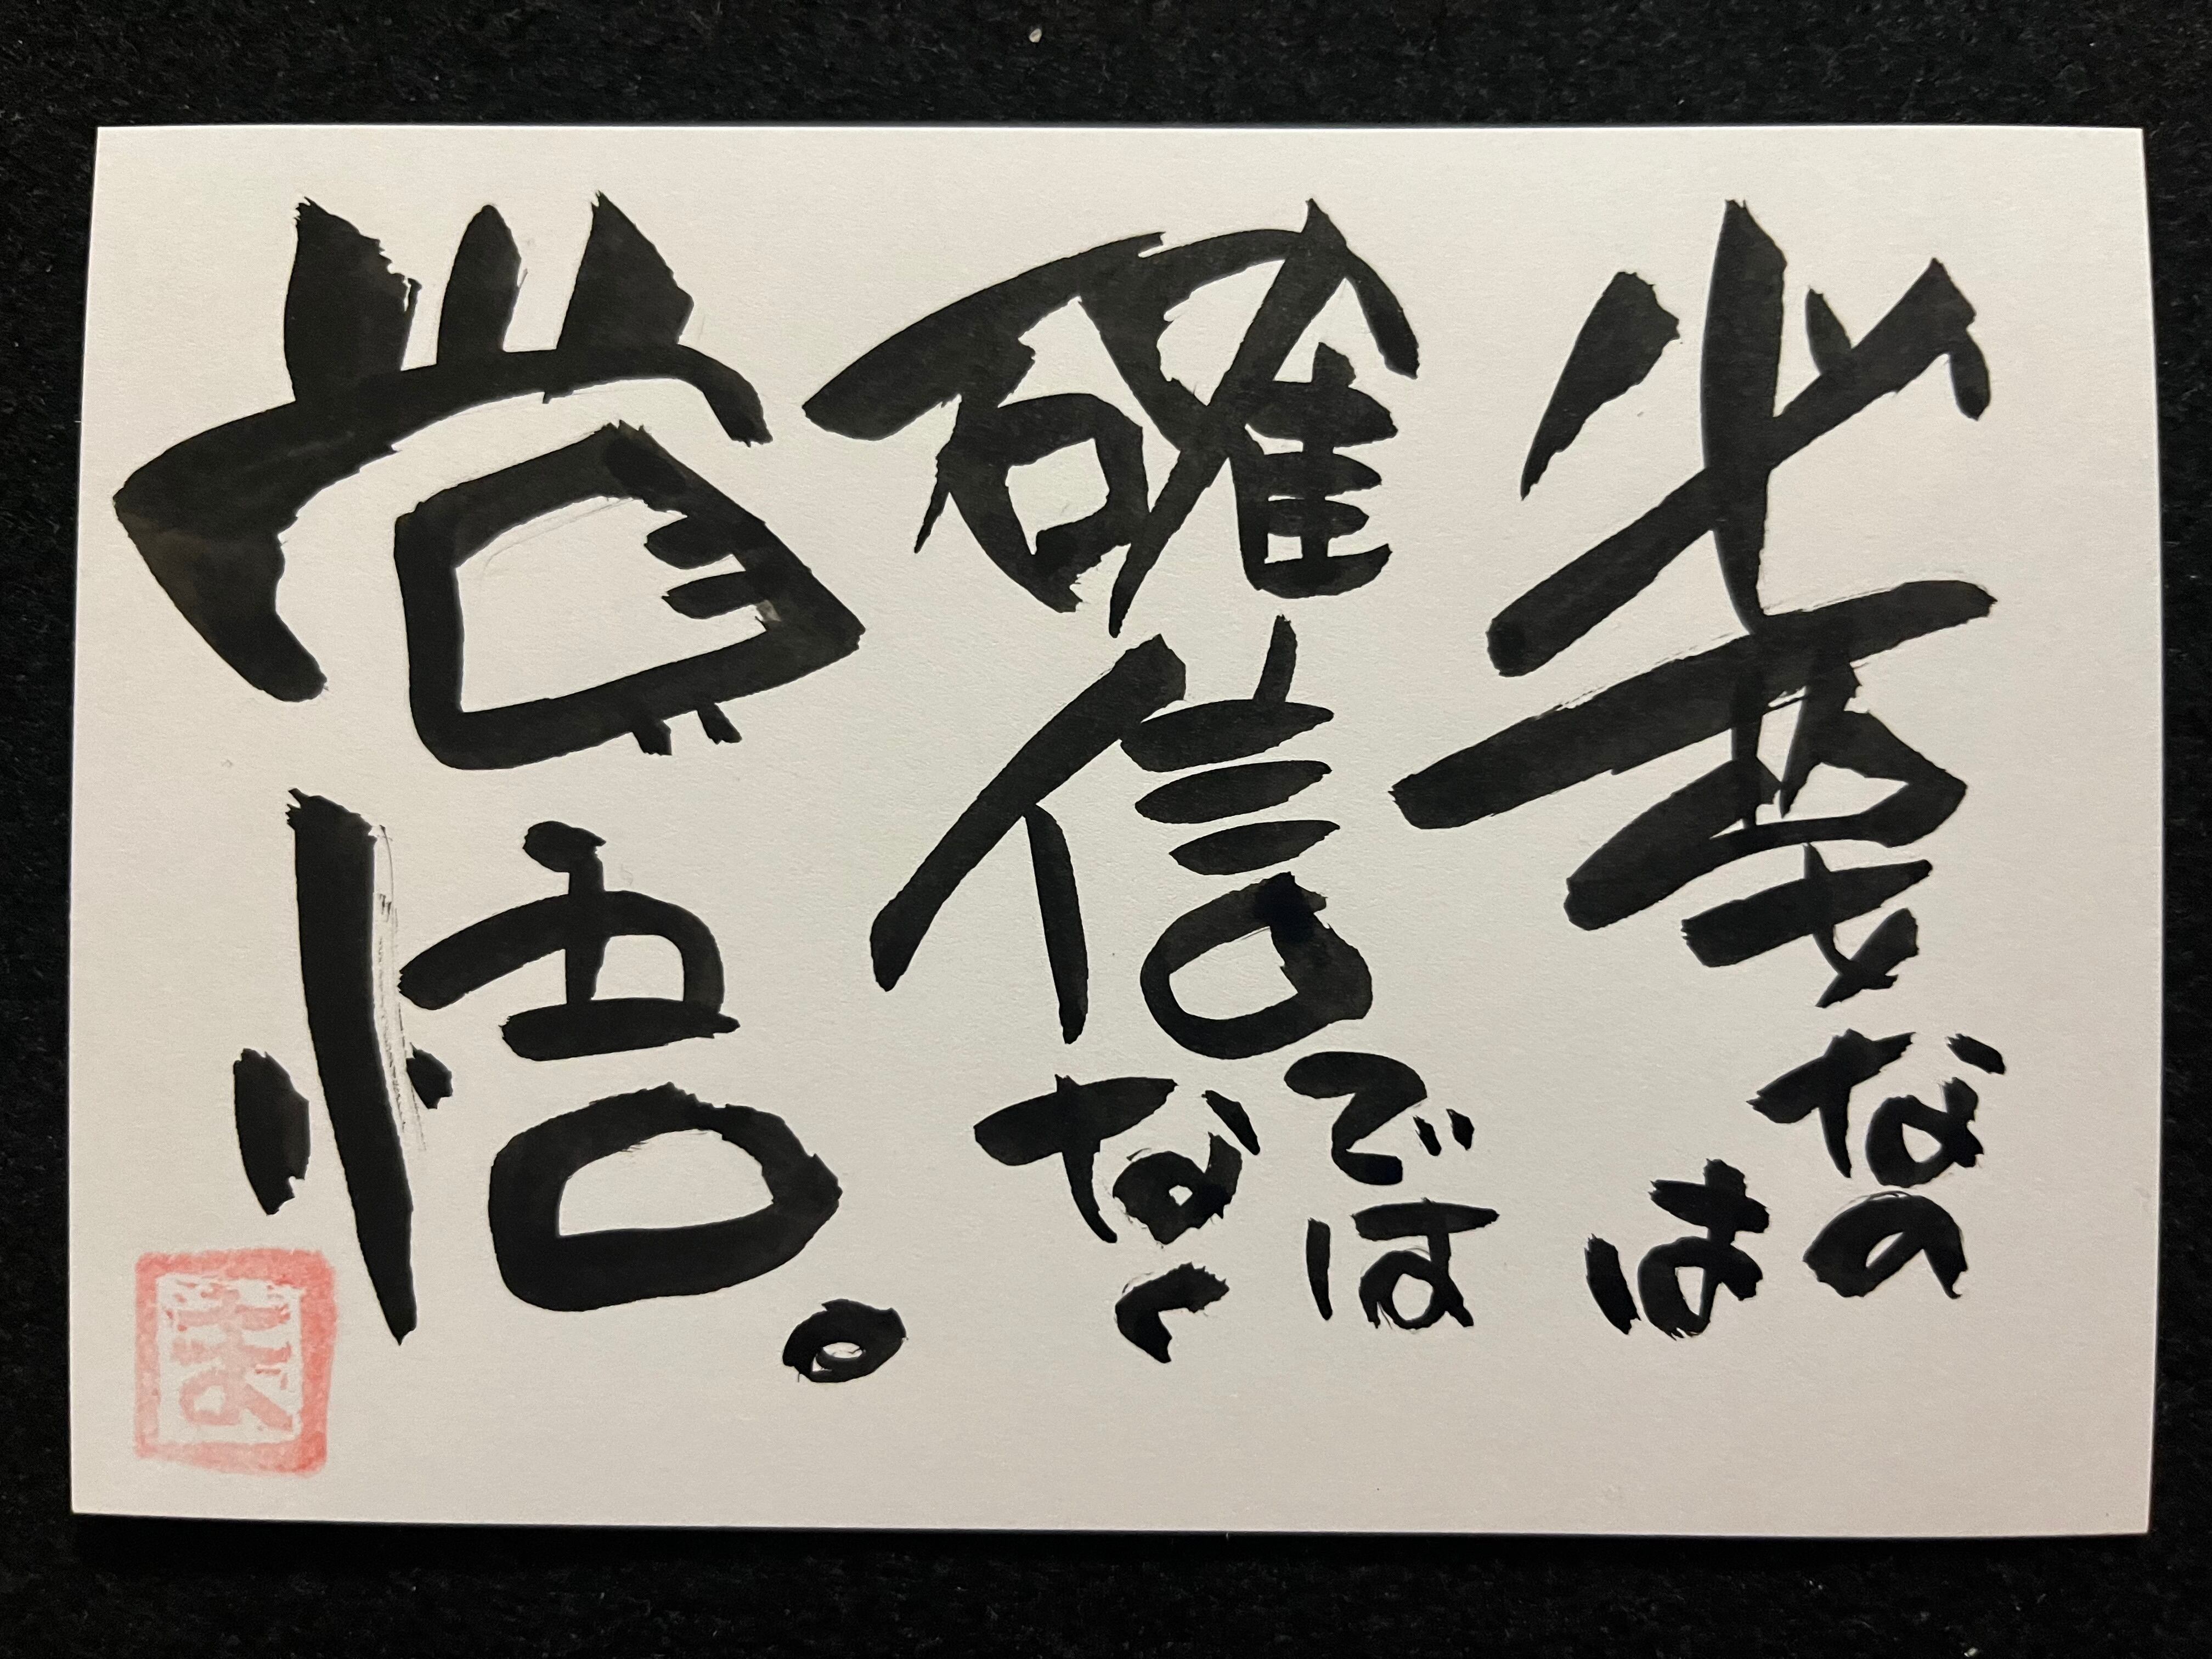 必要なのは
確信ではなく
覚悟。